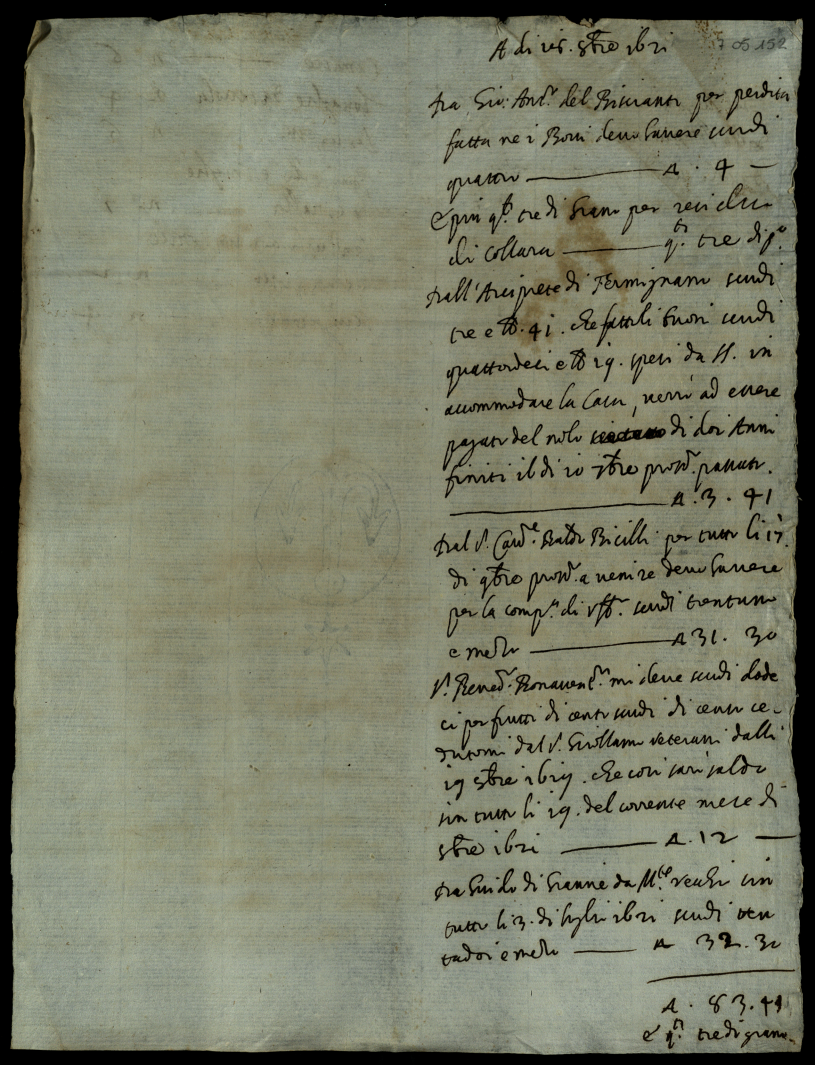 A di 18. 8bre 1621
7 05 152
Da Gio: Ant.o del Biscianti per perdita
fatta ne i Bovi devo havere scudi
quattro A. 4 —
E più q.ti tre di Grano per residuo
di Collara q.ti tre di g.o
Dall'Arciprete di Fermignano scudi
tre e bb. 41. che fattoli buoni scudi
quattordeci e bb 19. spesi da ss. in
accommodare la Casa, verrò ad essere
pagato del nolo di doi Anni
finiti il di 10 7bre pross.o passato.
A. 3. 41
Dal S. Cav.e Baldo Bicilli per tutto li 17.
di 9bre pross.o a venire devo havere
per la comp.a di uff.o scudi trentuno
e mezo A 31. 30
S.r Bened.o Bonavent.a mi deve scudi dode
ci per frutti di cento scudi di censo ce-
dutomi dal S. Girollamo Veterani dalli
19 8bre 1619. che così sarò saldo
sin tutto li 19. del corrente mese di
8bre 1621 A. 12 —
Da Guido di Gianne da M.te vecchi sin
tutto li 3. di luglio 1621 scudi tren
tadoi e mezo A 32. 30
A. 83. 41
e q.ti tre di grano.